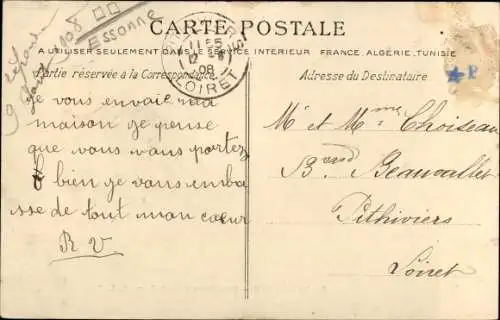 Essonne
CARTE POSTALE
A UTILISER SEULEMENT DANS LE SERVICE INTERIEUR FRANCE, ALGÉRIE, TUNISIE
Partie réservée à la Correspondance
Adresse du Destinataire
08
LOIRET
je vous envoie ma
maison je pense
que vous vous portez
bien je vous emba
sse de tout mon cœur
R V
Mr et Mme Choiseau
Bvd Beauvallet
Pithiviers
Loiret